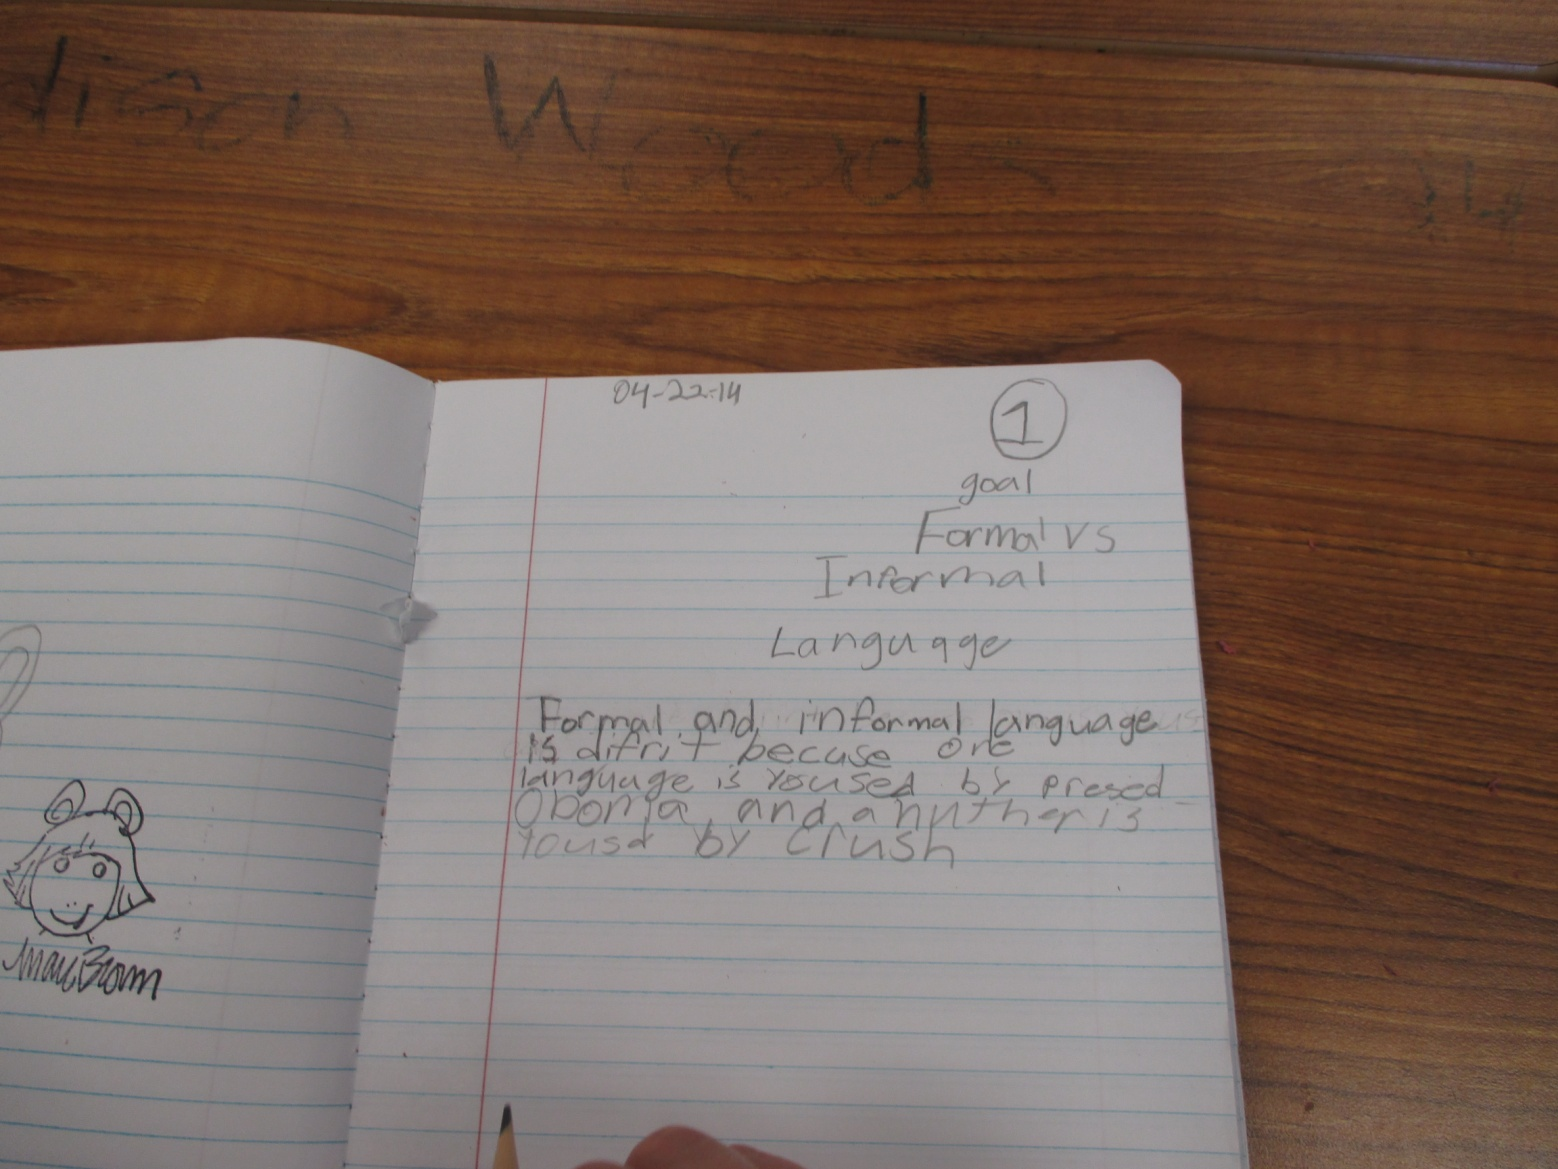 dison Woods
04-22-14
1
goal
Formal vs
Informal
Language
Formal and informal language
is difrit becuse one
language is yoused by presed
Oboma and anuther is
yousd by Crush
Marc Brown